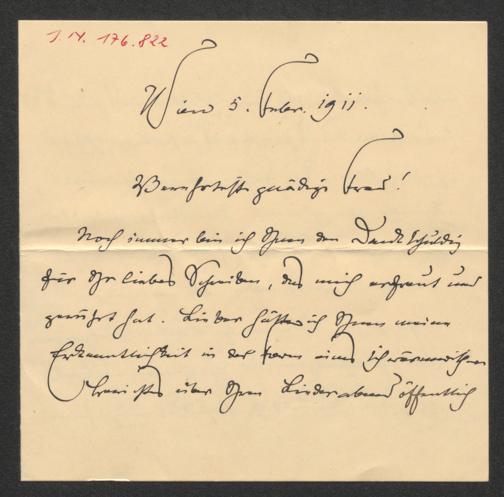 J.N. 176.822
Wien 5. Feber. 1911.
Verehrteste gnädige Frau!
Noch immer bin ich Ihnen den Dank schuldig
für Ihr liebes Schreiben, das mich erfreut und
gerührt hat. Lieber hätte ich Ihnen meine
Erkenntlichkeit in der Form eines
über Ihren Liederabend öffentlich